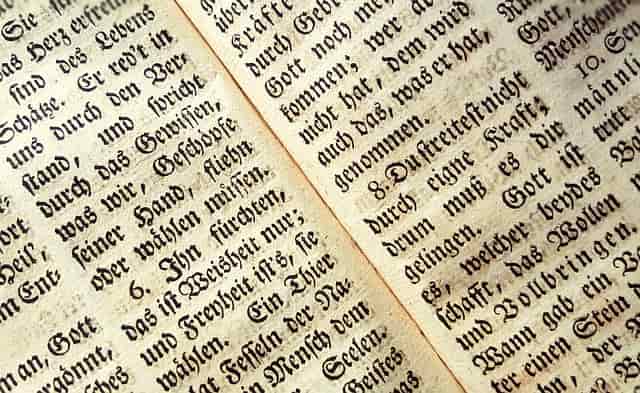 Sie
das Herz erfreun
sind des Lebens
Schätze. Er red't in
uns durch den Ver-
stand, und spricht
durch das Gewissen,
was wir, Geschöpfe
seiner Hand, fliehn
oder wählen müssen.
6. Ihn fürchten,
das ist Weisheit nur;
und Freyheit ist's, sie
wählen. Ein Thier
Fesseln der Na-
Mensch dem
Seelen-
Geistes
Heil,
Ent-
man, Gott
Kräfte
durch Geb
Gott noch meh
kommen; wer da
nicht hat, dem wird
auch das, was er hat,
genommen.
8. Du streitest nicht
durch eigne Kraft;
drum muß es dir
gelingen. Gott ist
es, welcher beydes
schafft, das Wollen
und Vollbringen.
Wann gab ein Va-
ter einen Stein
der
Gott,
Menschen
10.
männli